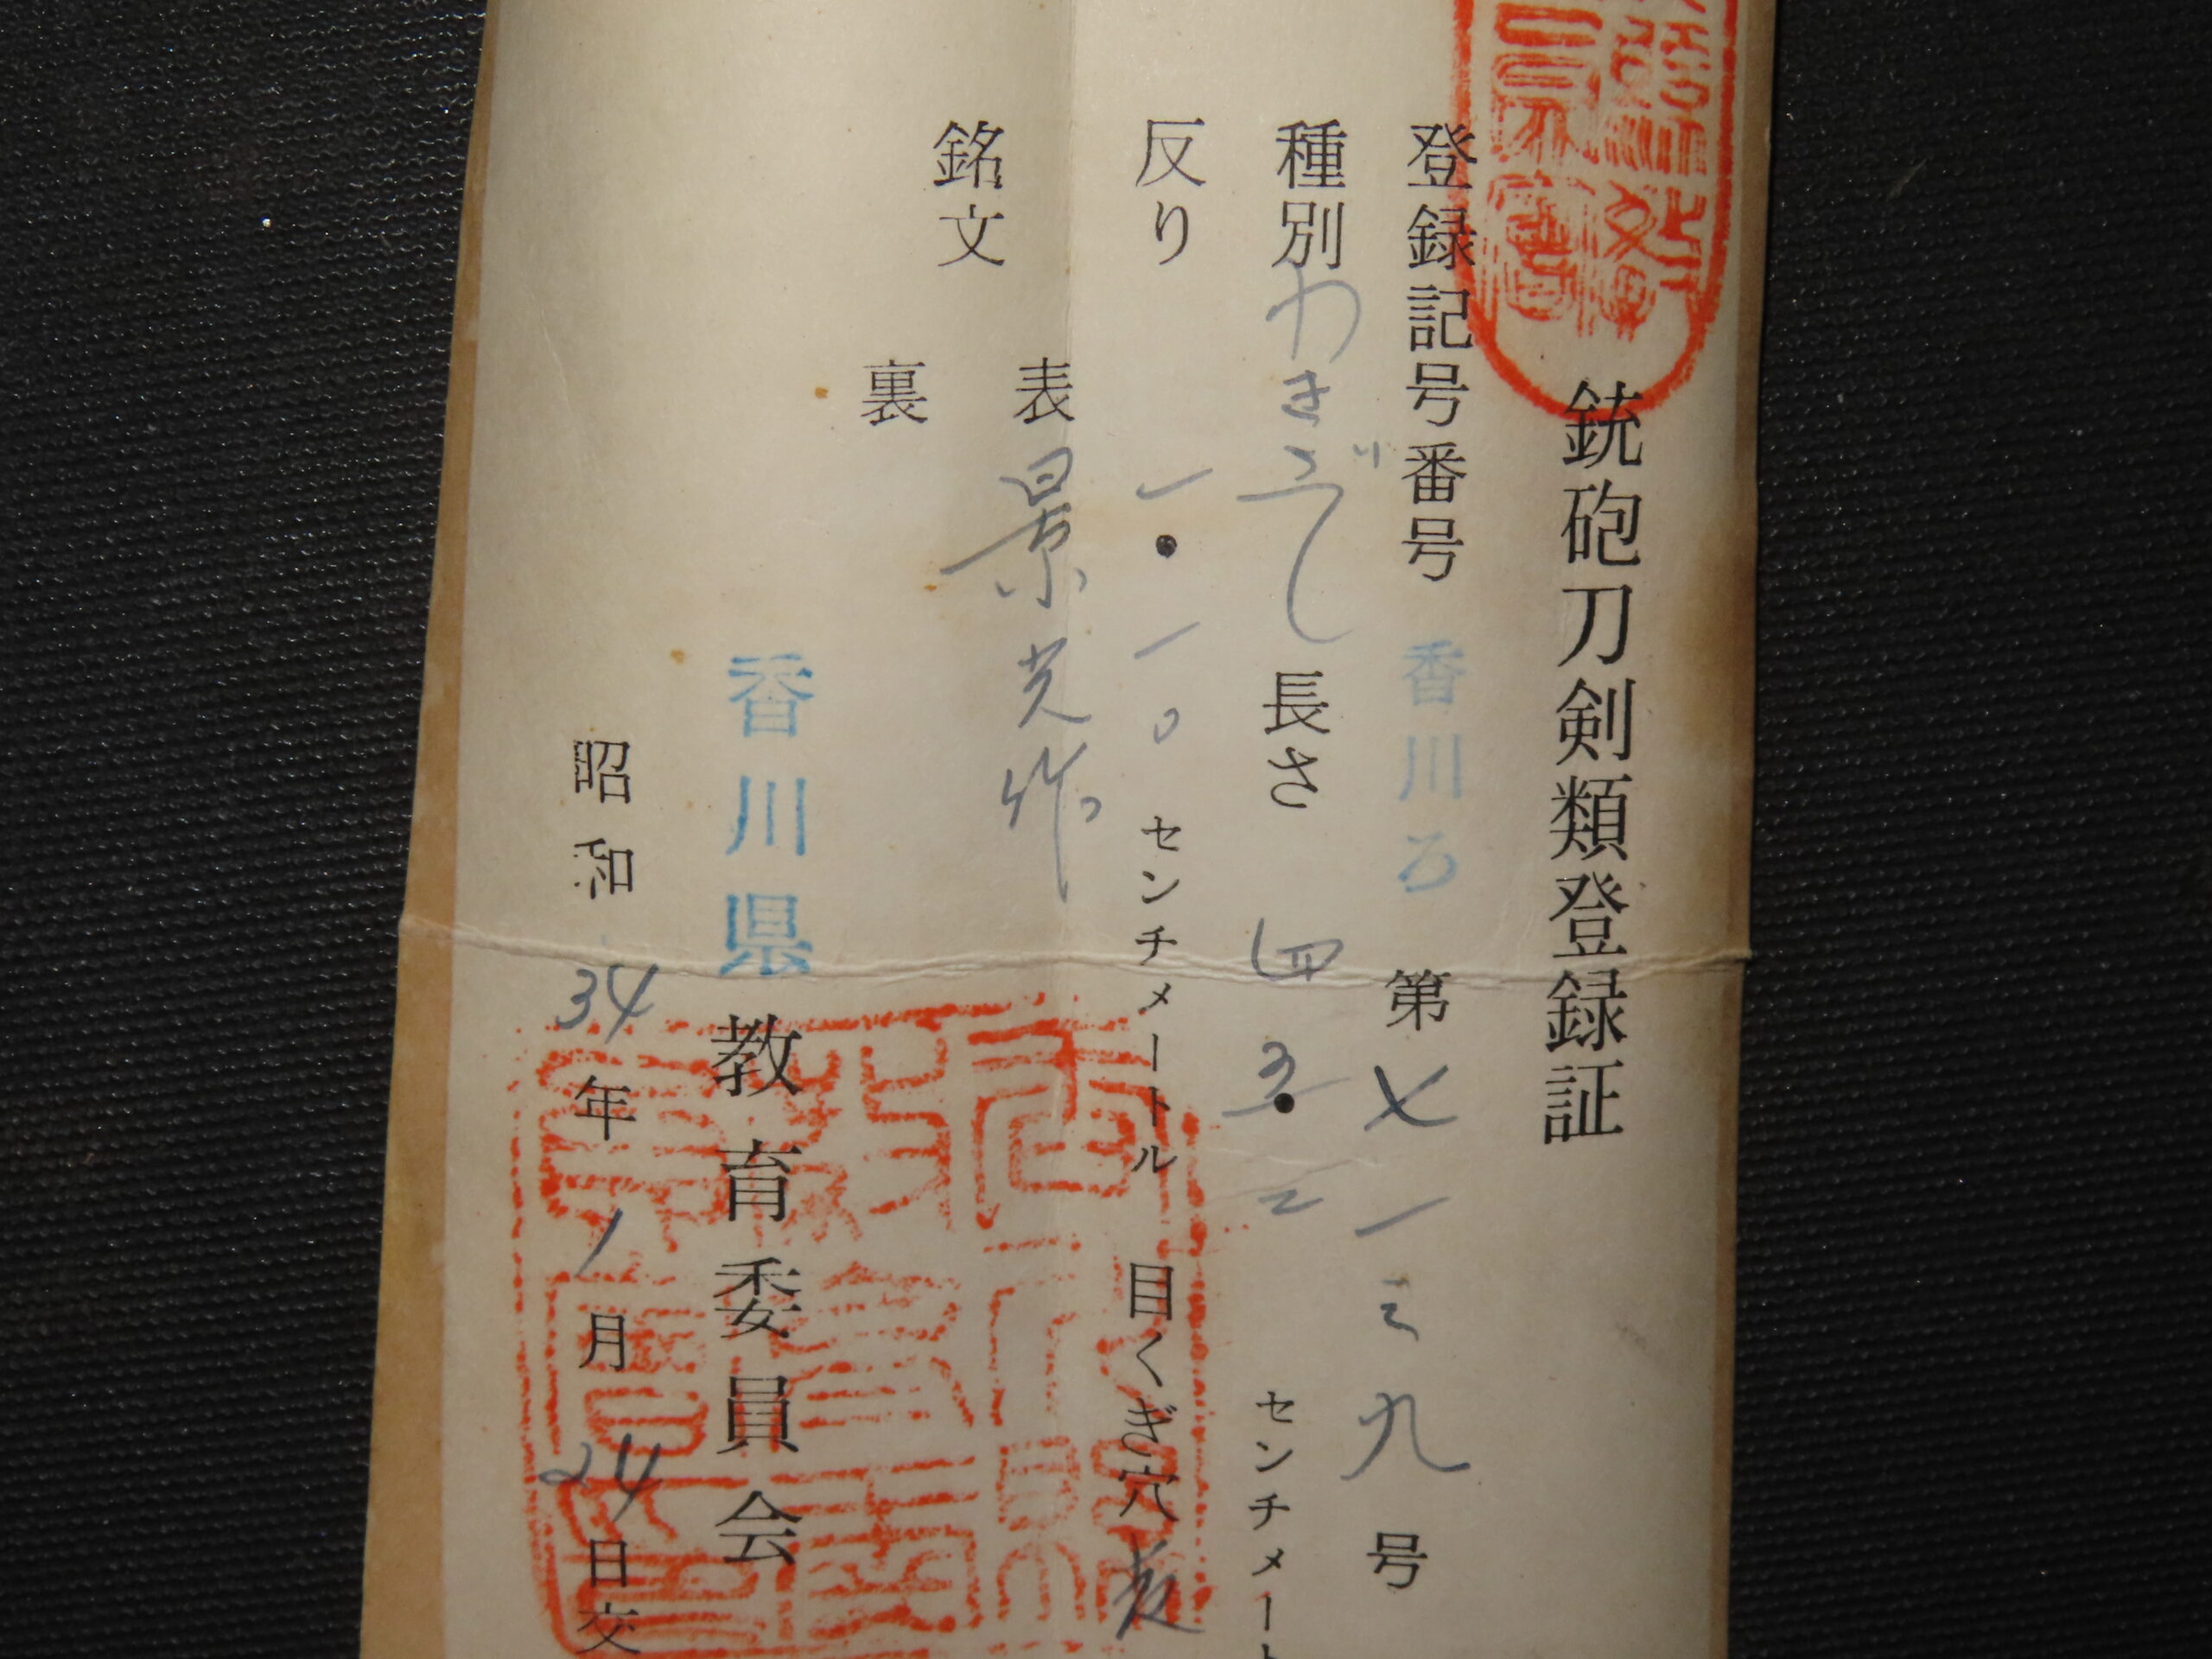 銃砲刀剣類登録証
登録記号番号 香川ろ 第七一三九号
種別 わきざし 長さ 四五・二 センチメート
反り 一・一〇 センチメートル 目くぎ穴
銘文 表 景光作
裏
香川県教育委員会
昭和34年1月24日交